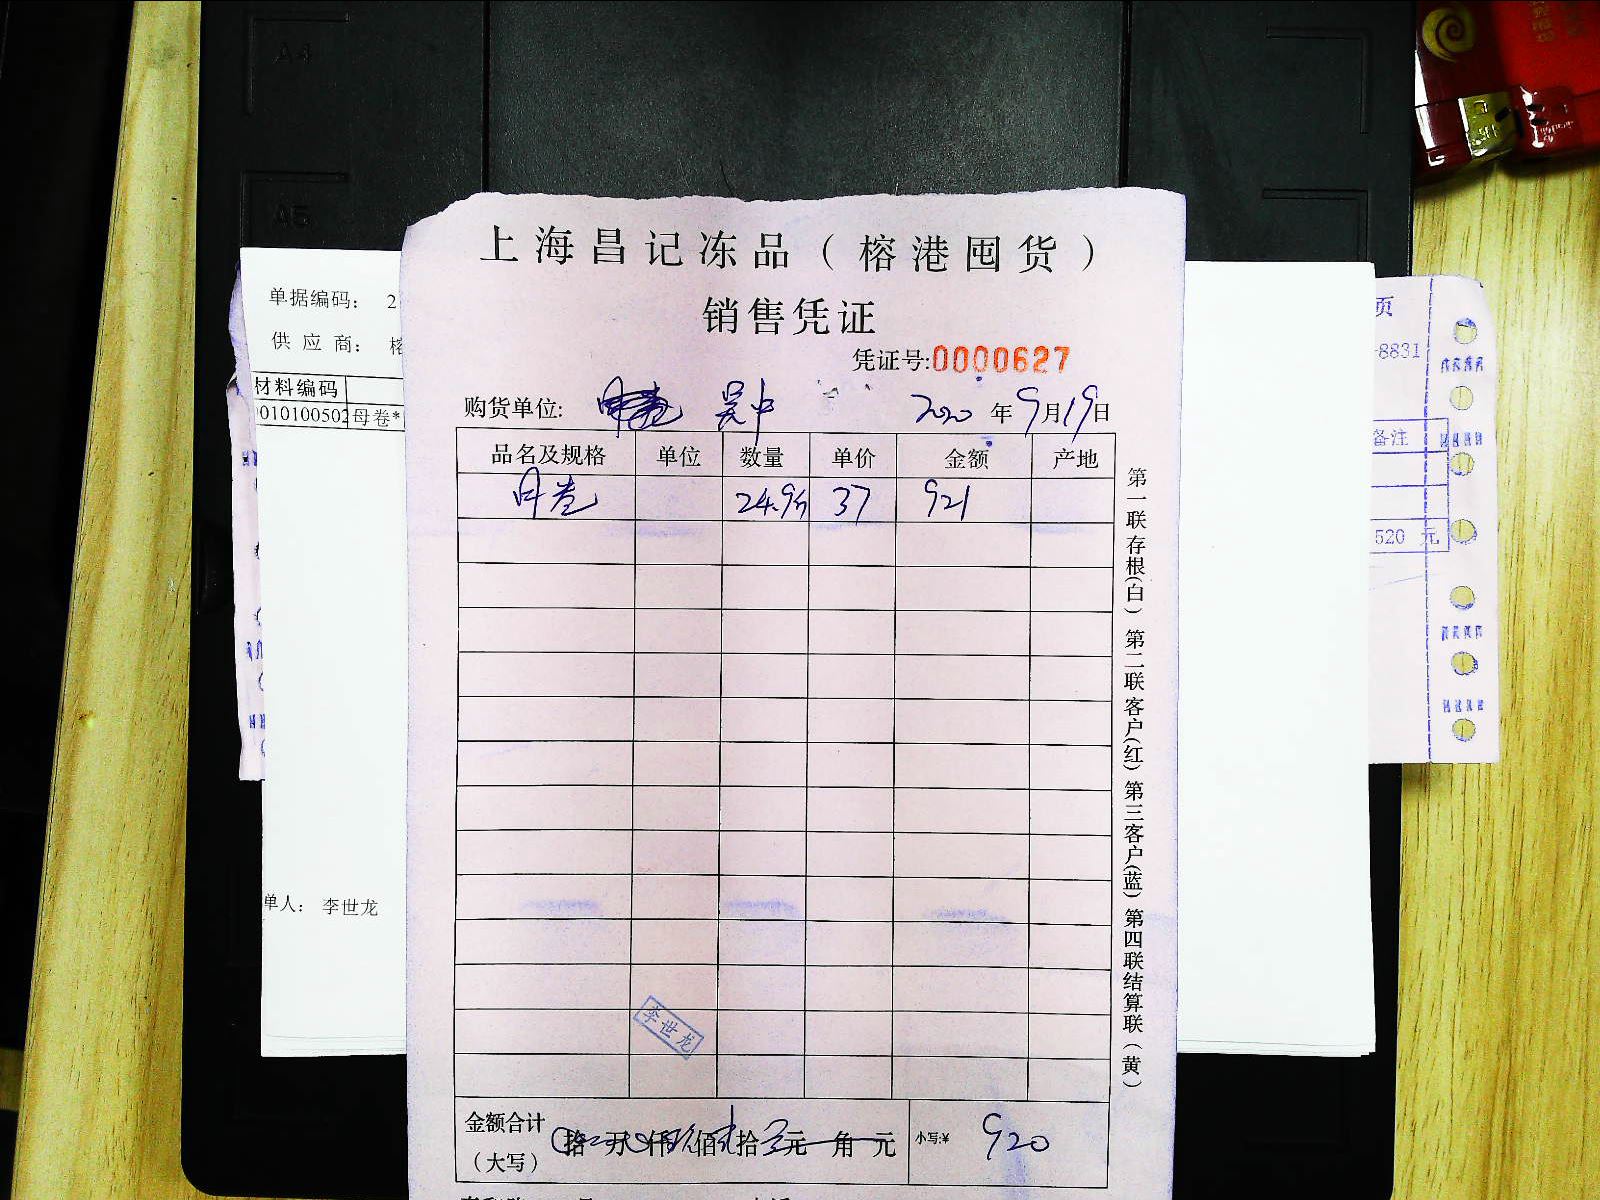 A4
A5
上海昌记冻品（榕港囤货）
销售凭证
凭证号:0000627
购货单位: 吴中 2020年9月19日
品名及规格 单位 数量 单价 金额 产地
母卷 24.9斤 37 921
第一联存根(白) 第二联客户(红) 第三客户(蓝) 第四联结算联(黄)
李世龙
金额合计
(大写)
拾 万 仟 佰 拾 元 角 元
小写:¥ 920
单据编码： 2
供应商：
材料编码
010100502 母卷*
单人： 李世龙
页
-8831
备注
520 元